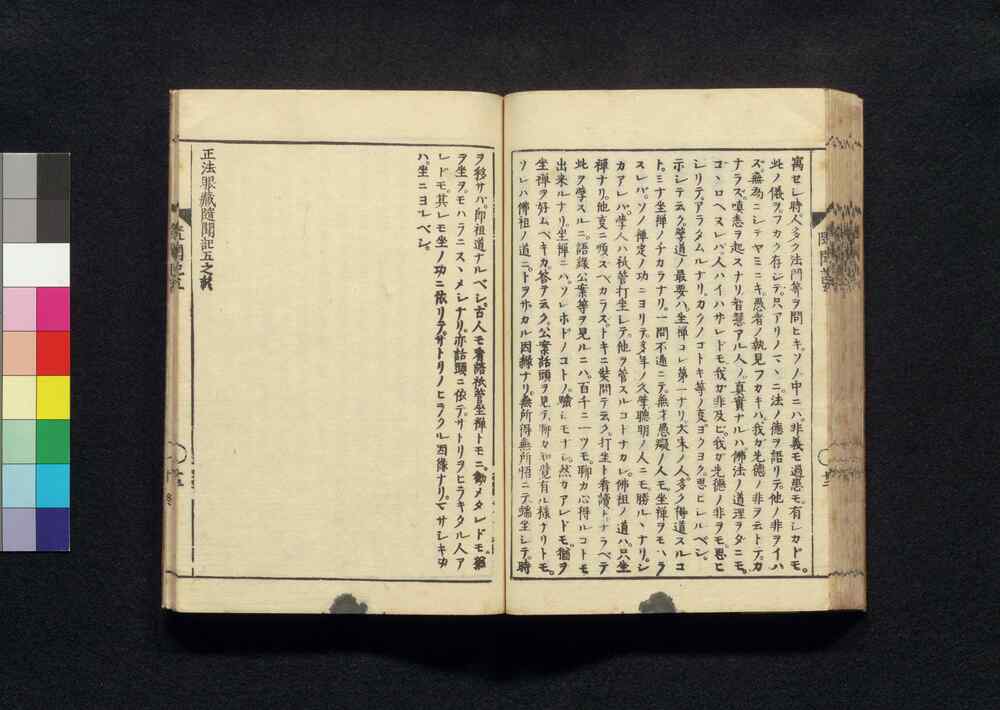 寓セシ時人多ク法門等ヲ問ヒキ。ソノ中ニハ非義モ過患モ有シカドモ。
此ノ儀ヲフカク存シテ。只アリノマヽニ法ノ德ヲ語リテ。他ノ非ヲイハ
ズ。無為ニシテヤミニキ。愚者ノ執見フカキハ。我ガ先德ノ非ヲ云トテ。カ
ナラズ嗔恚ヲ起スナリ。智慧アル人ノ真實ナルハ。佛法ノ道理ヲダニモ。
コヽロヘスレバ。人ハイハザレドモ。我ガ非及ビ我ガ先德ノ非ヲモ思ヒ
シリテ。アラタムルナリ。カクノゴトキ等ノ亊。ヨクヨク思ヒシルベシ。
示シテ云ク。學道ノ最要ハ。坐禪コレ第一ナリ。大宋ノ人多ク得道スルコ
ト。ミナ坐禪ノチカラナリ。一問不通ニテ。無才愚癡ノ人モ。坐禪ヲモハラ
スレバ。ソノ禪定ノ功ニヨリテ。多年ノ久學聰明ノ人ニモ勝ルヽナリ。シ
カアレバ。學人ハ祇管打坐シテ。他ヲ管スルコトナカレ。佛祖ノ道ハ只坐
禪ナリ。他亊ニ順ズベカラズ。トキニ奘問テ云ク。打坐ト看讀トナラベテ
此ヲ學スルニ。語錄公案等ヲ見ルニハ。百千ニ一ツモ。聊カ心得ルコトモ
出来ルナリ。坐禪ニハソレホドノコトノ驗シモナシ。然カアレドモ。猶ヲ
坐禪ヲ好ムベキカ。答テ云ク。公案話頭ヲ見テ。聊カ知覺有ル樣ナリトモ。
ソレハ佛祖ノ道ニトヲザカル因緣ナリ。無所得無所悟ニテ端坐シテ。時
ヲ移サバ。即祖道ナルベシ。古人モ看語祇管坐禪トモニ勸メタレドモ。猶
ヲ坐ヲモハラニスヽメシナリ。亦話頭ニ依テ。サトリヲヒラキタル人ア
レドモ。其レモ坐ノ功ニ依リテ。サトリノヒラクル因緣ナリ。マサシキ功
ハ坐ニヨルベシ。
正法眼藏隨聞記五之終